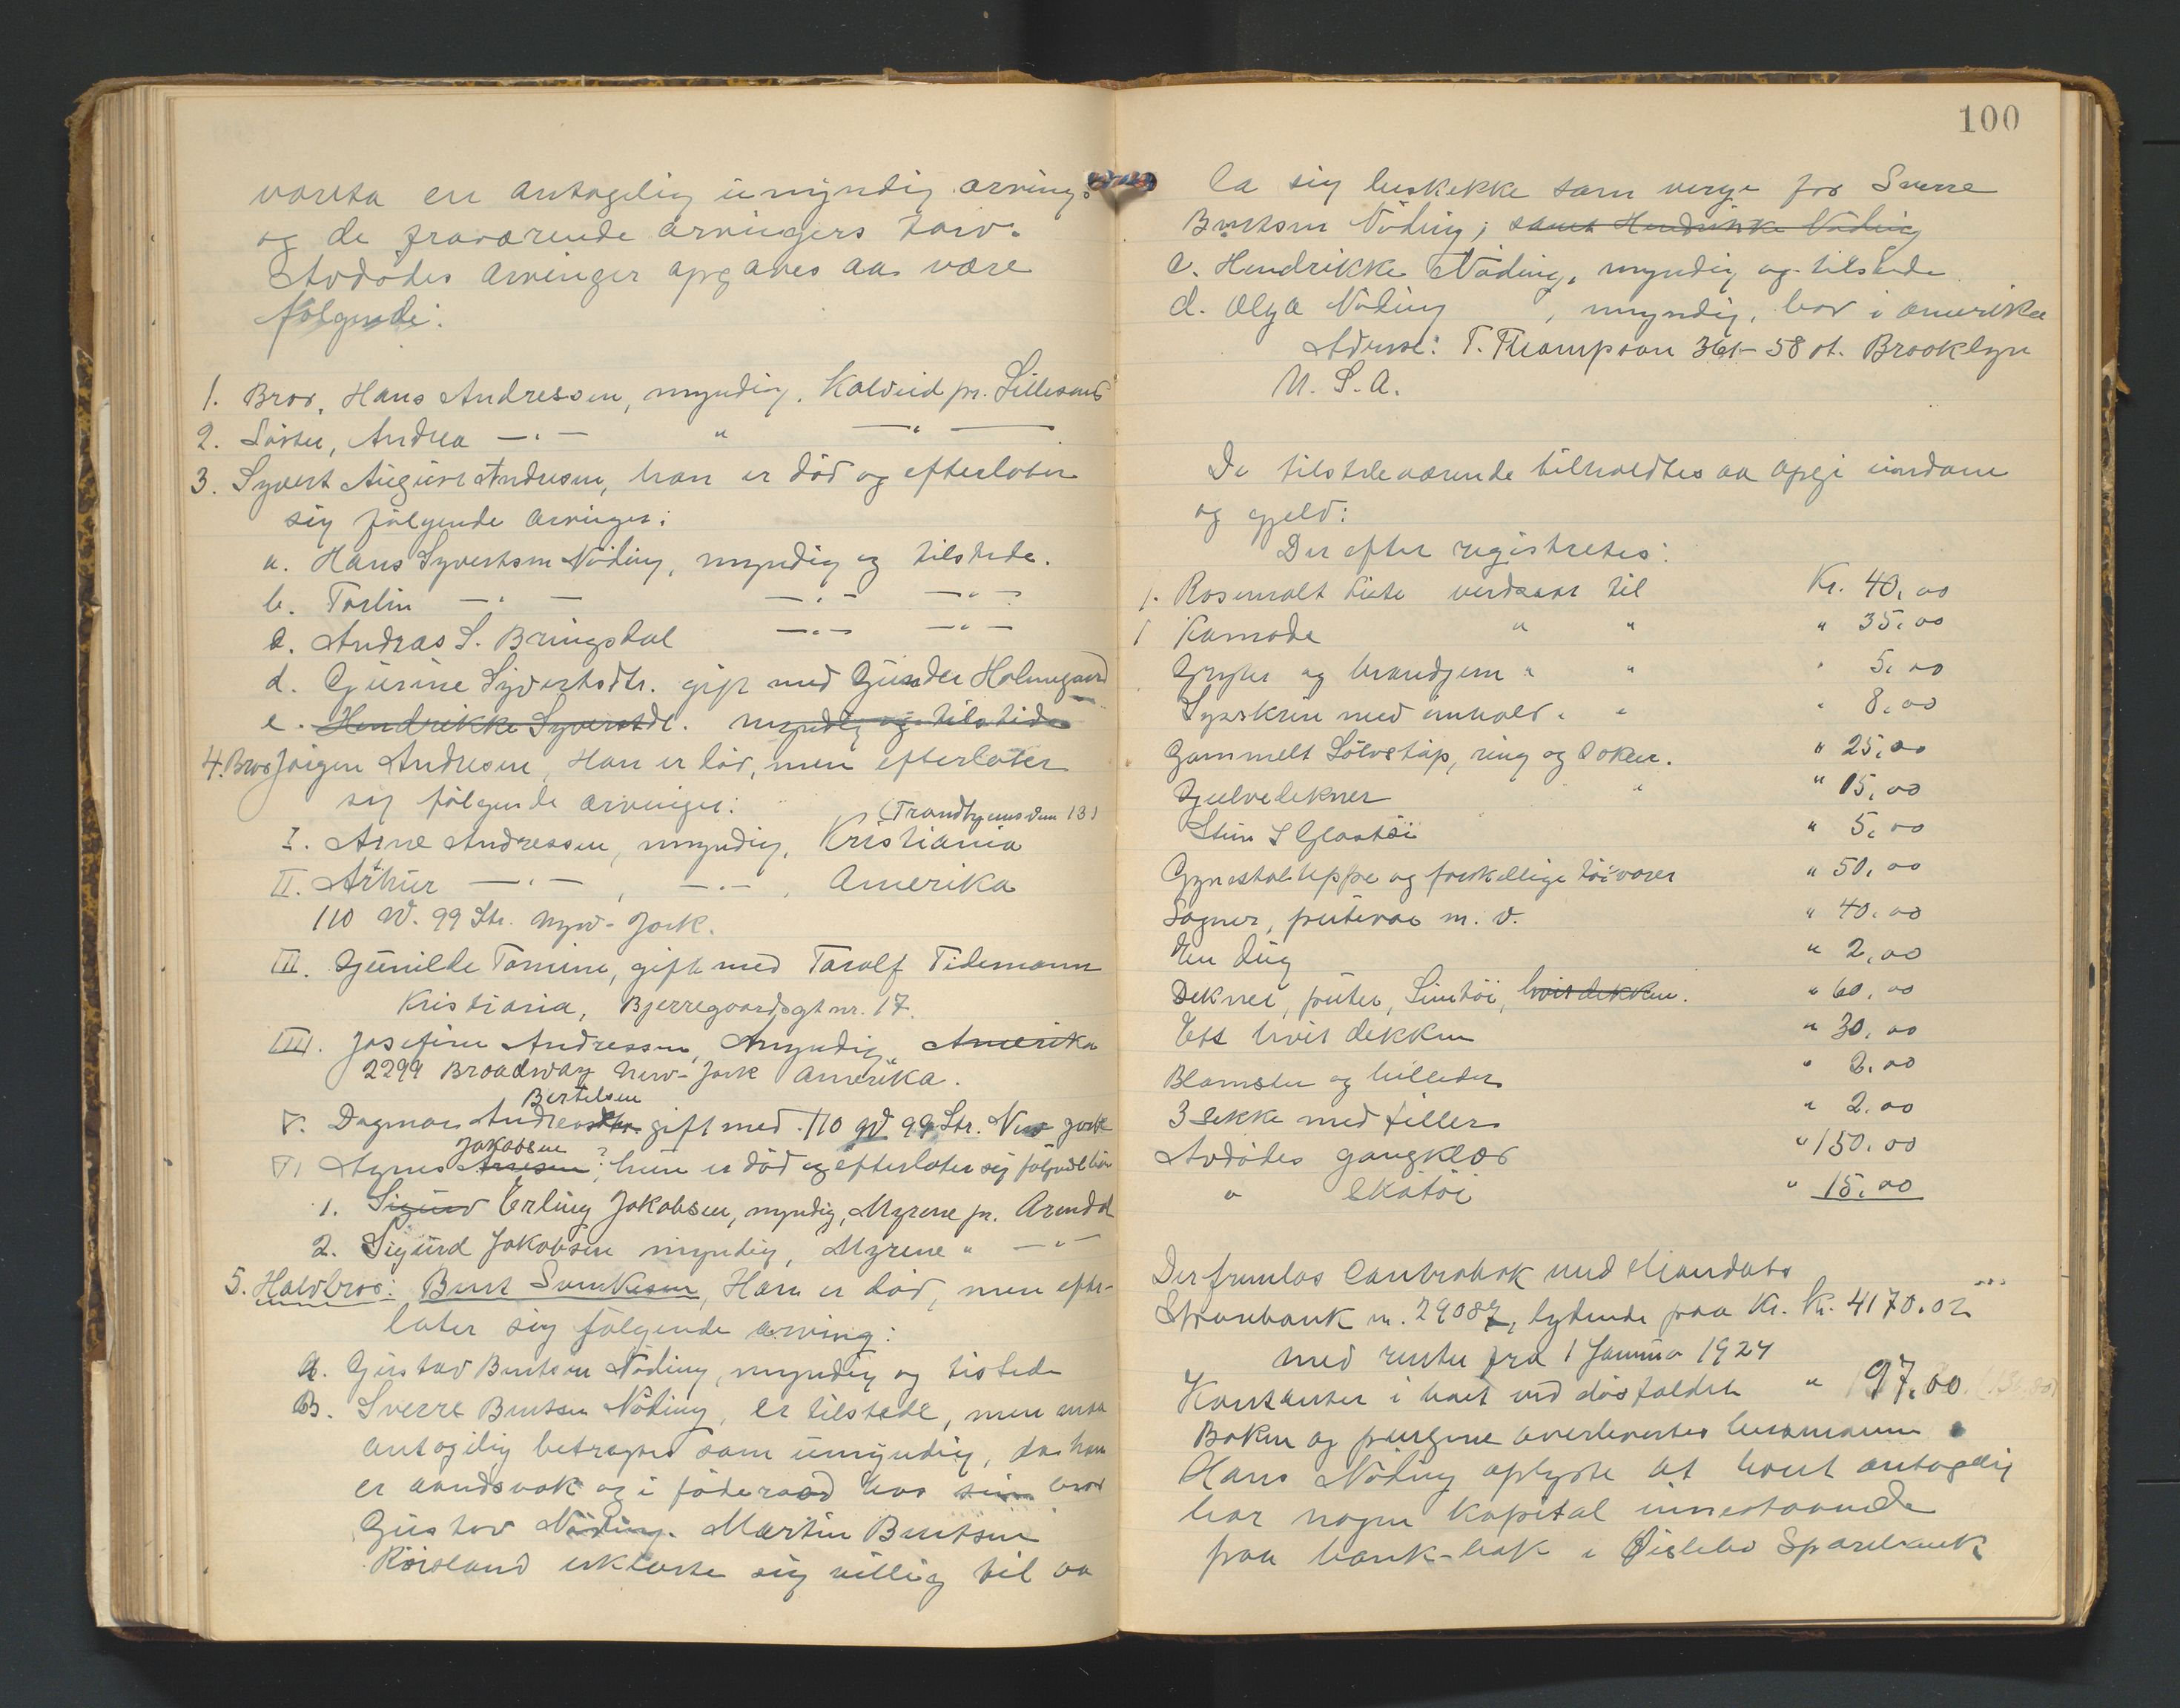 vareta en antagelig umyndig arving.
og de fraværende arvingers tarv.
Avdødes arvinger opgaves aa være
følgende:
1. Bror, Hans Andressen, myndig, Kalveid pr. Lillesand
2. Søster, Andrea —"— " —"—
3. Syvert August Andresen, han er død og efterlater
sig følgende arvinger:
a. Hans Syvertsen Nöding, myndig og tilstede.
b. Torlin —"— —"— —"—
c. Andras S. Bringsdal —"— —"—
d. Gurine Syvertsdtr. gift med Gunder Holmegaard
e. Hendrikke Syvertsdt. myndig og tilstede
4. Bror Jörgen Andresen, Han er död, men efterlater
sig fölgende arvinger:
(Trondhjemsveien 13)
I. Arne Andressen, myndig, Kristiania
II. Athur —"—, —"—, Amerika
110 W. 99 Str. New-Jork.
III. Gunilde Tomine, gift med Taralf Tidemann
Kristiania, Bjerregaardsgt nr. 17.
IIII. Josefine Andressen, Myndig, Amerika
2299 Broadway New-Jork Amerika.
Bertelsen
V. Dagmar Andreasdtr. gift med. 110 W 99 Str. New Jork
Jakobsen
VI Agnes; hun er död og efterlater sig fölgende
1. Sigurd Erling Jakobsen, myndig, Myrene pr. Arendal
2. Sigurd Jakobsen myndig, Myrene " —"—
5. Halvbror: Bent Svenkesen, Han er död, men efter-
later sig følgende arving:
a. Gustav Bentsen Nöding, myndig og tistede
B. Sverre Bentsen Nöding, er tilstede, men maa
antagelig betragtes som umyndig, da han
er aandsvak og i föderaad hos sin bror
Gustav Nöding. Martin Bentsen
Röisland erklærte sig villig til aa
100
la sig beskikke som verge for Sverre
Bentsen Nöding; samt Hendrikke Nöding
c. Hendrikke Nöding, myndig og tilstede
d. Olga Nöding, myndig, bor i amerika
Adresse: T. Thompson 361-58 st. Brooklyn
U. S. A.
De tilstedeværende tilholdtes aa opgi eiendom
og gjeld:
Derefter registrertes:
1. Rosemalt kiste verdsat til Kr. 40,00
1 Kamode " " " 35,00
Gryter og brandjern " " " 5,00
Syskrin med innhold " " " 8,00
Gammelt Sölvstüp, ring og loken. " 25,00
Gulvdekner " " 15,00
Sten & Glastöi " 5,00
Gyngestol teppe og forskellige töivarer " 50,00
Lagner, putevar m. v. " 40,00
En dug " 2,00
Dekner, puter, Lintöi, hvit dekken. " 60,00
Ett hvit dekken " 30,00
Blomster og billeder " 2,00
3 sekke med filler " 2.00
Avdødes gangklær " 150.00
" skötöi " 15,00
Der fremlas Contrabok med Mandals
Sparebank nr. 29087, lydende paa Kr. Kr. 4170.02
med renter fra 1 Januar 1924
Kontanter i huset ved dösfaldet " 97.00
Boken og pengene overlevertes lensmannen
Hans Nöding oplyste at boet antagelig
har nogen kapital innestaaende
paa bank-bok i Øislebö Sparebank